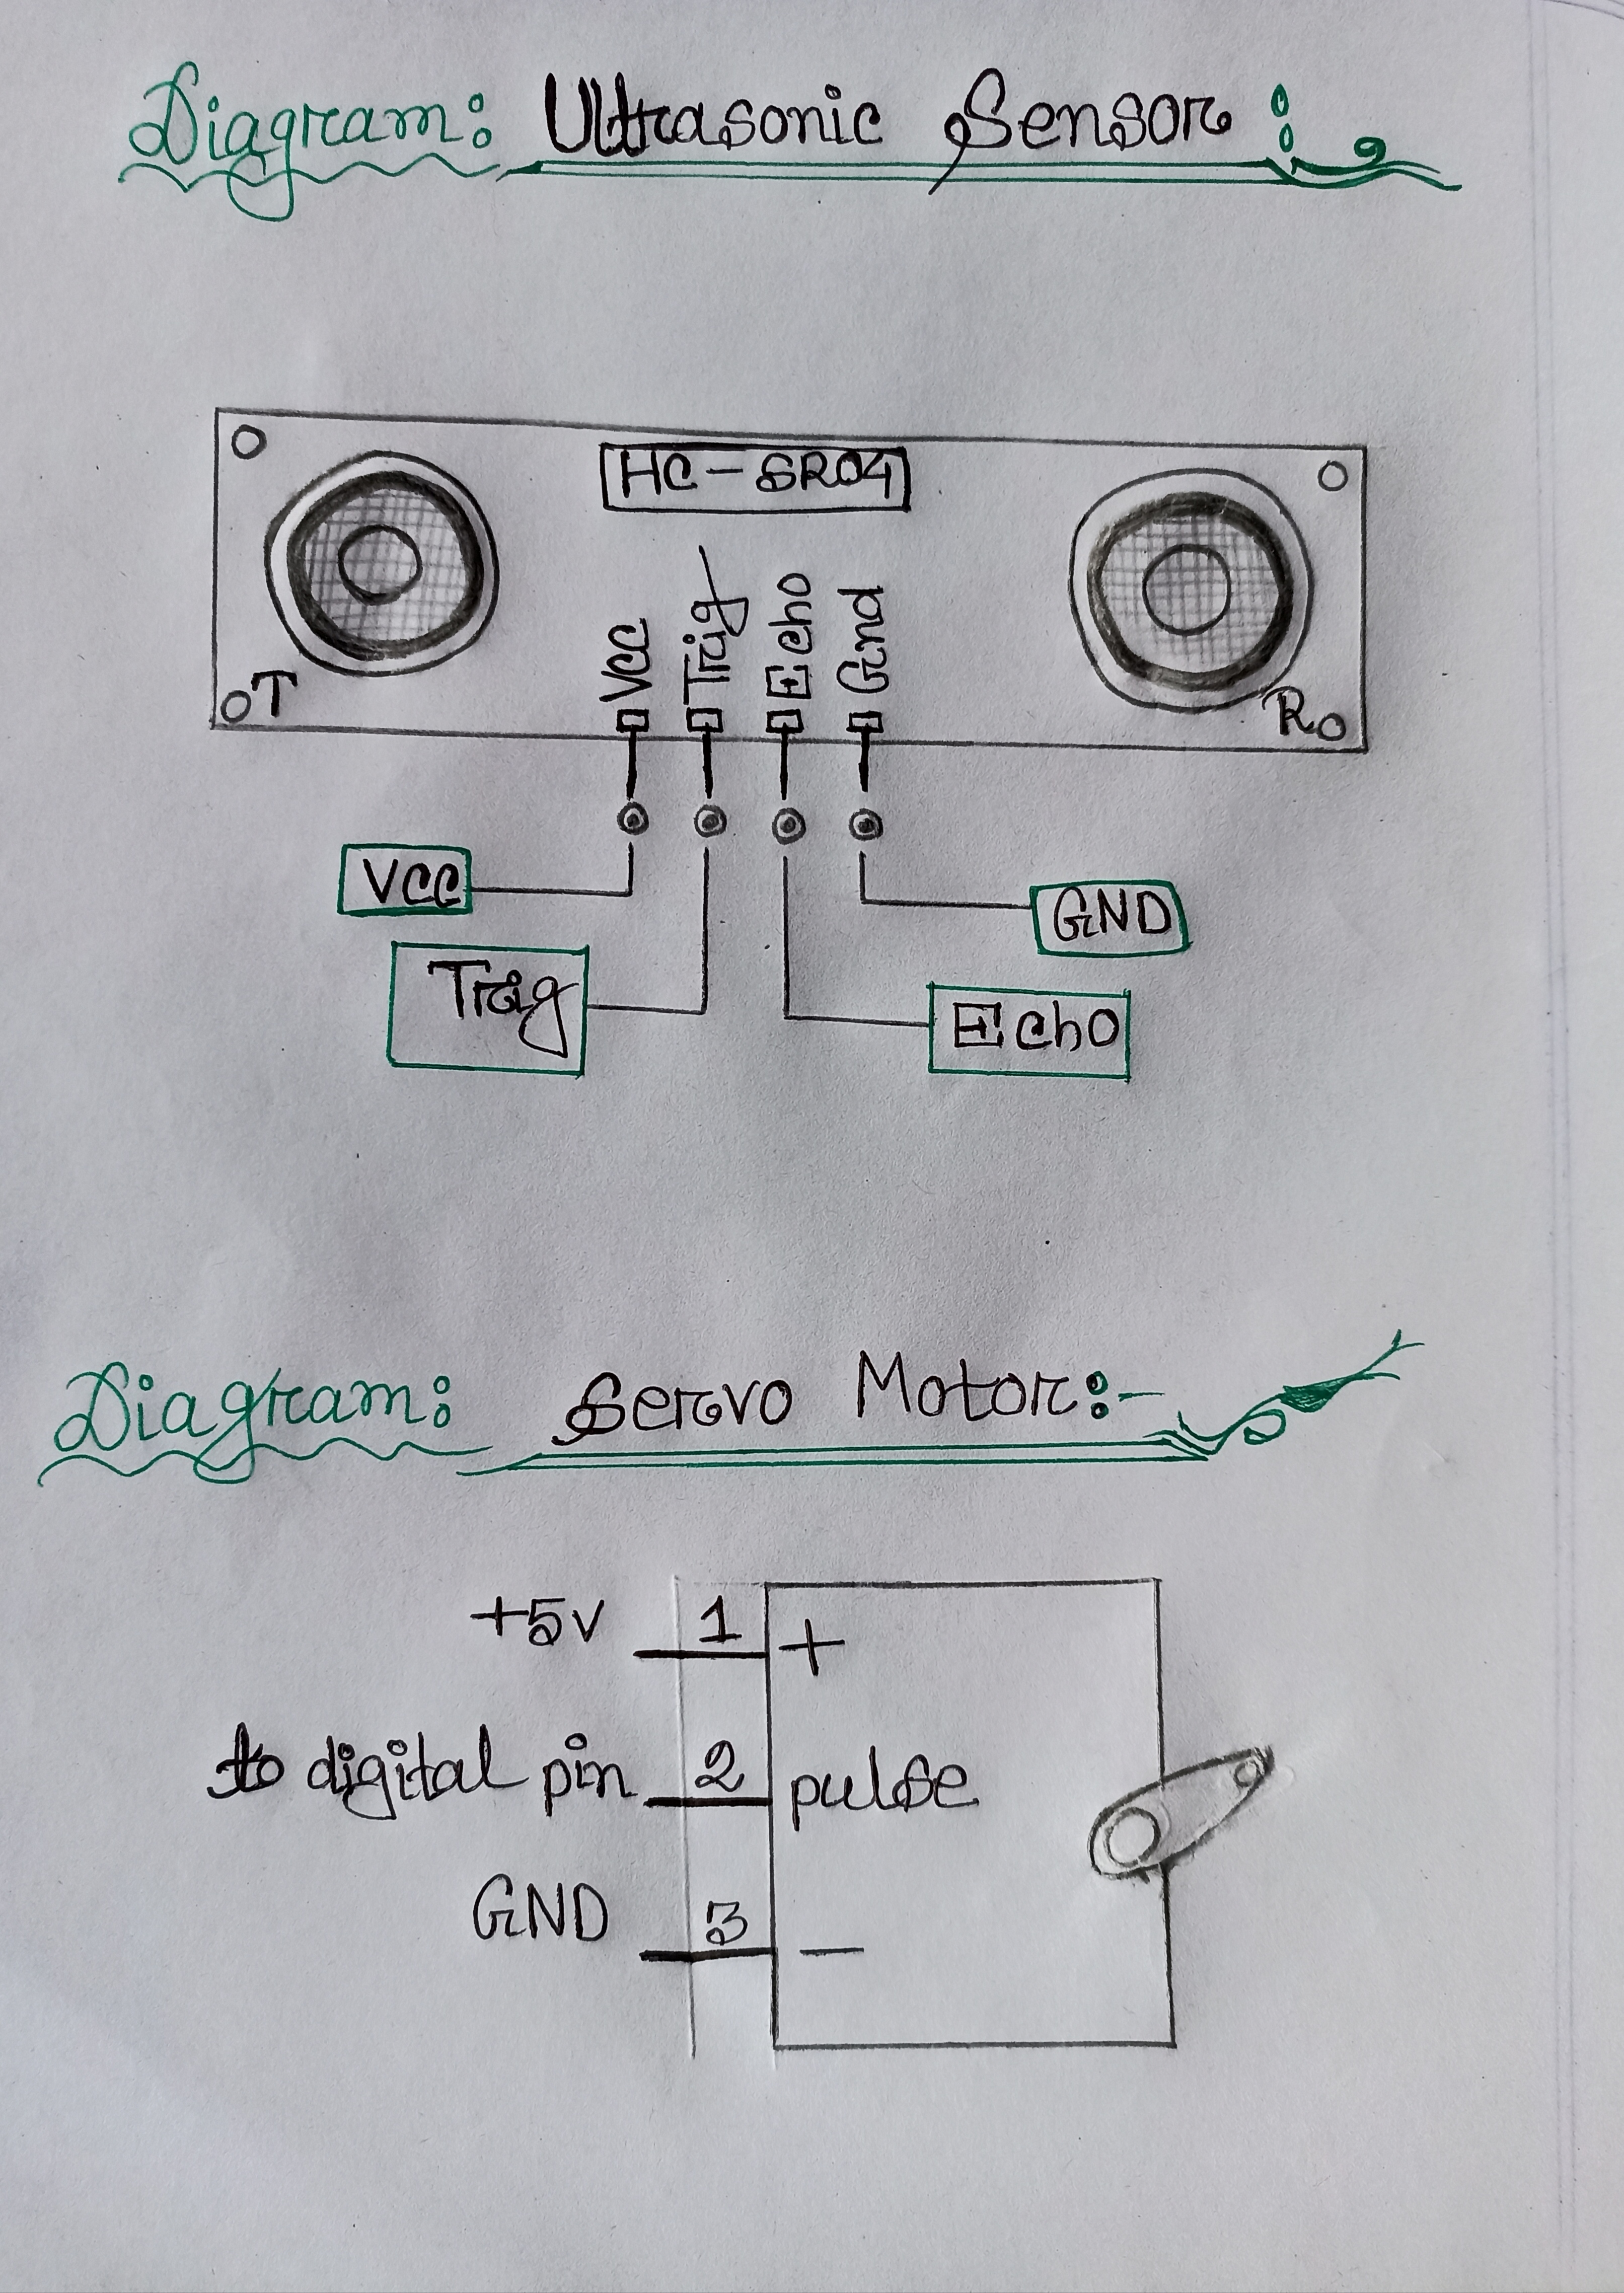 Diagram: Ultrasonic Sensor:
HC-SR04
Vcc Trig Echo Gnd
T R
Vcc GND
Trig Echo
Diagram: Servo Motor:-
+5v 1 +
to digital pin 2 pulse
GND 3 -